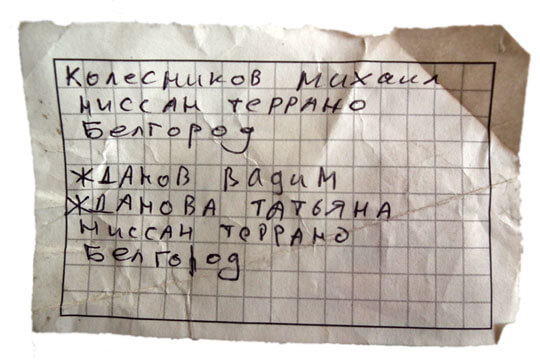 Колесников Михаил
Ниссан Террано
Белгород
Жданов Вадим
Жданова Татьяна
Ниссан Террано
Белгород